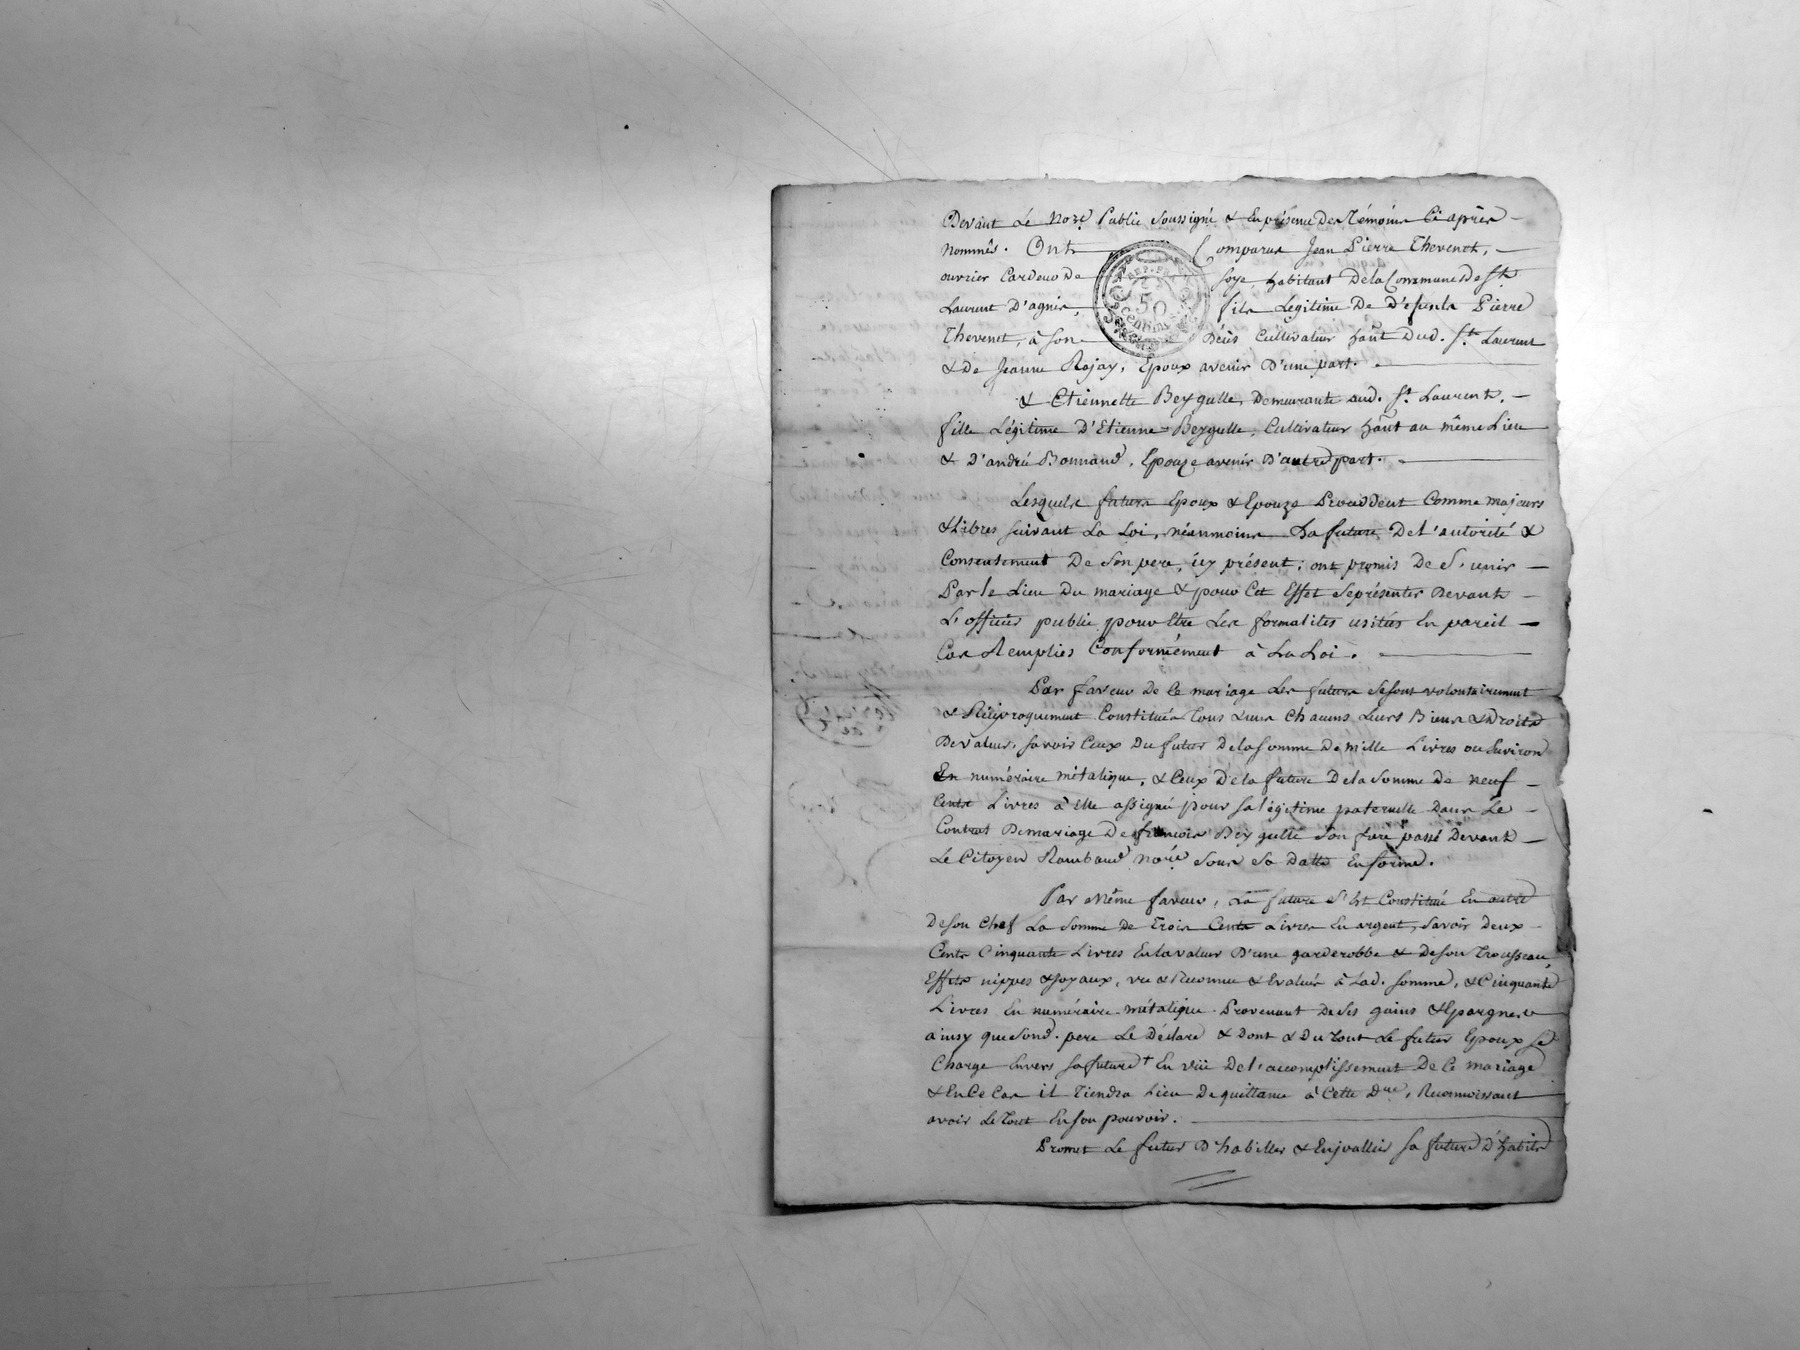 Devant Le No.re Public Soussigné & En présence Des Témoins Ci après
nommés. Ont Comparus Jean Pierre Thevenet,
ouvrier Cardeur De Soye habitant De la Commune de St.
Laurent D'agnis, fils Légitime De Défunts Pierre
Thevenet, à Son Décès Cultivateur hant Dud. St. Laurent
& De Jeanne Rojay, Epoux avenir D'une part.
& Etiennette Beygulle, Demeurante aud. St. Laurent,
fille Légitime D'Etienne Beygulle, Cultivateur hant au même Lieu
& D'andrée Bonnand, Epouze avenir D'autre part.
Lesquels futurs Epoux & Epouze Procèddent Comme majeurs
& Libres suivant La Loi, néanmoins La future De L'autorité &
Consentement De Son pere, icy présent; ont promis De S'unir
Par le Lien Du mariage & pour Cet Effet Se présenter Devant
L'officier public pour Etre Les formalités usitées En pareil
Cas Remplies Conformément à La Loi.
Par faveur De Ce mariage Les futurs Se sont volontairement
& Réciproquement Constitués Tous Leurs Chacuns Leurs Biens & Droits
De valeur, Savoir Ceux Du futur De la Somme De mille Livres ou Environ
En numéraire métalique, & Ceux De la future De la Somme De neuf
Cents Livres à Elle assignée pour Sa légitime paternelle Dans Le
Contrat De mariage De françois Beygulle Son frere passé Devant
Le Citoyen Rambaud No.re Sous Sa Datte En forme.
Par Même faveur, La future S'est Constitué En outre
De Son Chef La Somme De Trois Cents Livres En argent, Savoir Deux
Cents Cinquante Livres En la valeur D'une garderobbe & De Son Trousseau,
Effets nippes & Joyaux, vu & Reconnu & Evalués à Lad. Somme, & Cinquante
Livres En numéraire métalique Provenant De Ses gains & Epargnes
ainsy que Sond. pere Le Déclare & Dont & Du Tout Le futur Epoux Se
Charge Envers Sa future + En vüe De L'accomplissement De Ce mariage
& En Ce Cas il Tiendra Lieu De quittance à Cette D.re, Reconnoissant
avoir Le Tout En Son pouvoir.
Promet Le futur D'habiller & Enjoaller Sa future D'habits
50